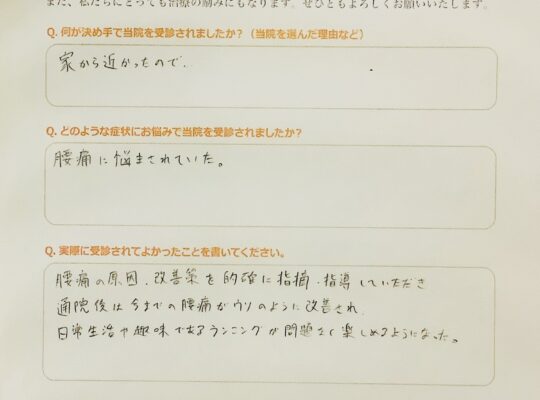 また、私たちにとっても治療の励みにもなります。ぜひともよろしくお願いいたします。
Q. 何が決め手で当院を受診されましたか?（当院を選んだ理由など）
家から近かったので.
Q. どのような症状にお悩みで当院を受診されましたか?
腰痛に悩まされていた。
Q. 実際に受診されてよかったことを書いてください。
腰痛の原因、改善策を的確に指摘、指導していただき
通院後は今までの腰痛がウソのように改善され、
日常生活や趣味であるランニングが問題なく楽しめるようになった。